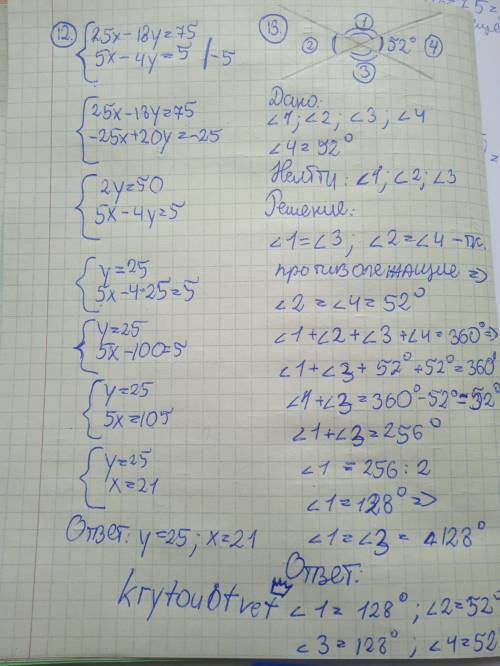 12.
25x-18y=75
5x-4y=5 /-5
25x-18y=75
-25x+20y=-25
2y=50
5x-4y=5
y=25
5x-4·25=5
y=25
5x-100=5
y=25
5x=105
y=25
x=21
Ответ: y=25; x=21
krytoubtvet
13.
1
2
52° 4
3
Дано:
∠1; ∠2; ∠3; ∠4
∠4=52°
Найти: ∠1; ∠2; ∠3
Решение:
∠1=∠3; ∠2=∠4 - т.к.
противолежащие =>
∠2=∠4=52°
∠1+∠2+∠3+∠4=360° =>
∠1+∠3+52°+52°=360°
∠1+∠3=360°-52°-52°
∠1+∠3=256°
∠1=256:2
∠1=128° =>
∠1=∠3=128°
Ответ:
∠1=128°; ∠2=52°
∠3=128°; ∠4=52°